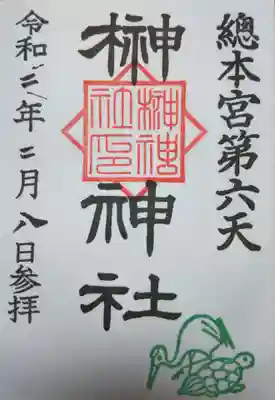 總本宮第六天
榊神社
榊神
社印
令和三年二月八日参拝